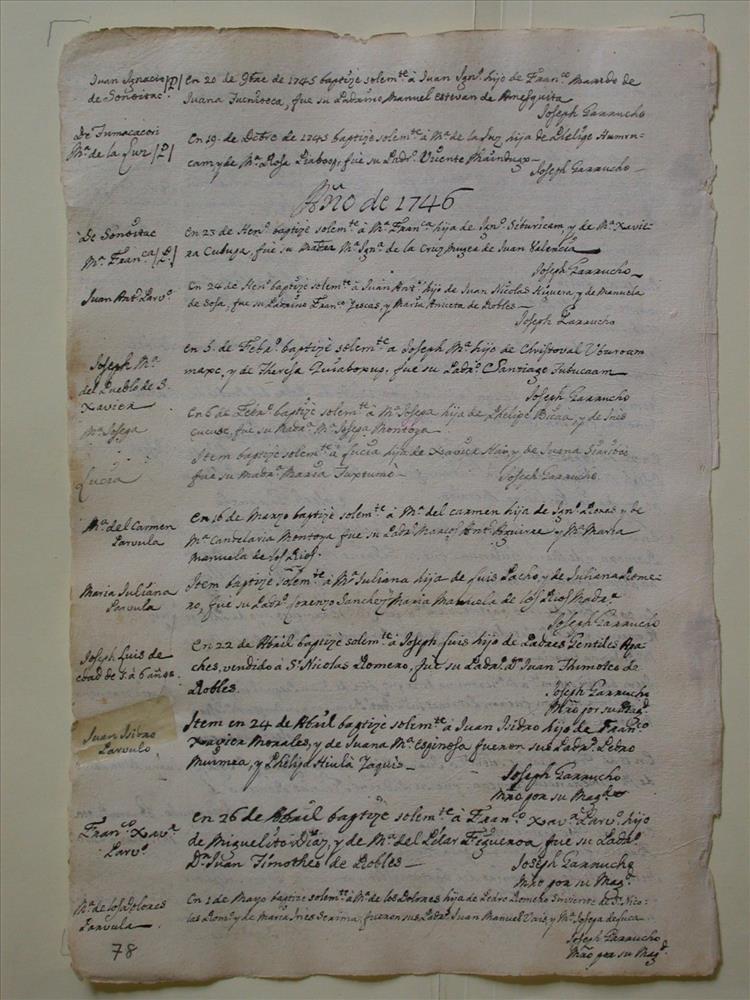 Juan Ignacio |P|
de Sonoitac.
En 20 de 9bre de 1745 baptizè solem.te à Juan Ign.o hijo de Fran.co y de
Juana, fue su Padrino Manuel Estevan de Amesquita
Joseph Garrucho
De Tumacacori
M.a de la Luz |P|
En 19. de Dcbre de 1745 baptizè solem.te à M.a de la Luz hija de Phelipe
y de M.a Rosa, fue su Padr.o Vicente
Joseph Garrucho
Año de 1746
De Sonoitac
M.a Fran.ca |P.|
En 23 de Hen.o baptizè solem.te à M.a Fran.ca hija de Ign.o y de M.a Xavie-
ra, fue su Madr.a M.a Ign.a de la Cruz muger de Juan Valencia
Joseph Garrucho
Juan Ant.o Parv.o
En 24 de Hen.o baptizè solem.te à Juan Ant.o hijo de Juan Nicolas Higuera y de Manuela
de Sosa, fue su Padrino Fran.co y Maria Aniceta de Robles
Joseph Garrucho
Joseph M.a
del Pueblo de S.
Xavier
En 5. de Febr.o baptizè solem.te à Joseph M.a hijo de Christoval
y de Theresa, fue su Padr.o Santiago Tubucaam
Joseph Garrucho
M.a Josepa
En 6 de Febr.o baptizè solem.te à M.a Josepa hija de Phelipe y de Ines
fue su Madr.a M.a Josepa Montoya
Lucia
Item baptizè solem.te à Lucia hija de Xavier y de Juana
fue su Madr.a Maria
Joseph Garrucho
M.a del Carmen
Parvula
En 16 de Marzo baptizè solem.te à M.a del Carmen hija de Ign.o y de
M.a Candelaria Montoya fue su Padr.o Marcos Ant.o Aguirre y M.a Maria
Manuela de los Rios.
Maria Juliana
Parvula
Item baptizè solem.te à M.a Juliana hija de Luis Pacho, y de Juliana Rome-
ro, fue su Padr.o Lorenzo Sanchez y Maria Manuela de los Rios Madr.a
Joseph Garrucho
Joseph Luis de
edad de 5. à 6 años.
En 22 de Abril baptizè solem.te à Joseph Luis hijo de Padres Gentiles Apa-
ches, vendido à S.r Nicolas Romero, fue su Padr.o D.n Juan Thimoteo de
Robles.
Joseph Garrucho
Mro por su Mag.d
Juan Isidro
Parvulo
Item en 24 de Abril baptizè solem.te à Juan Isidro hijo de Fran.co
Xavier Morales, y de Juana M.a Espinosa fueron sus Padr.s Pedro
y Phelipa Hiula Yaquis
Joseph Garrucho
Mro por su Mag.d
Fran.co Xav.r
Parv.o
En 26 de Abril baptizè solem.te à Fran.co Xav.r Parv.o hijo
de Miguelito Diaz, y de M.a del Pilar Figueroa fue su Padr.o
D.n Juan Timotheo de Robles
Joseph Garrucho
Mro por su Mag.d
M.a de los Dolores
Parvula
En 1 de Mayo baptizè solem.te à M.a de los Dolores hija de Pedro Romero Sirviente de D.n Nico-
las Rom.o y de Maria Ines, fueron sus Padr.s Juan Manuel y M.a Josepa
Joseph Garrucho
Mro por su Mag.d
78